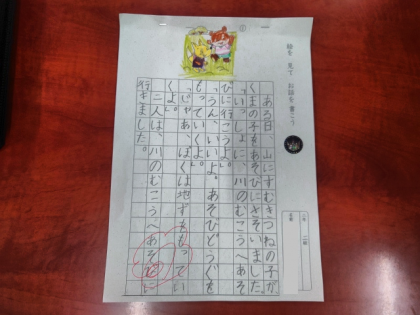 絵を 見て お話を 書こう
①
ある日、山にすむきつねの子が、
くまの子をあそびにさそいました。
「いっしょに、川のむこうへあそ
びに行こうよ。」
「うん、いいよ。あそびどうぐを
もっていくよ。」
「じゃあ、ぼくは地ずをもってい
くよ。」
二人は、川のむこうへあそびに
行きました。